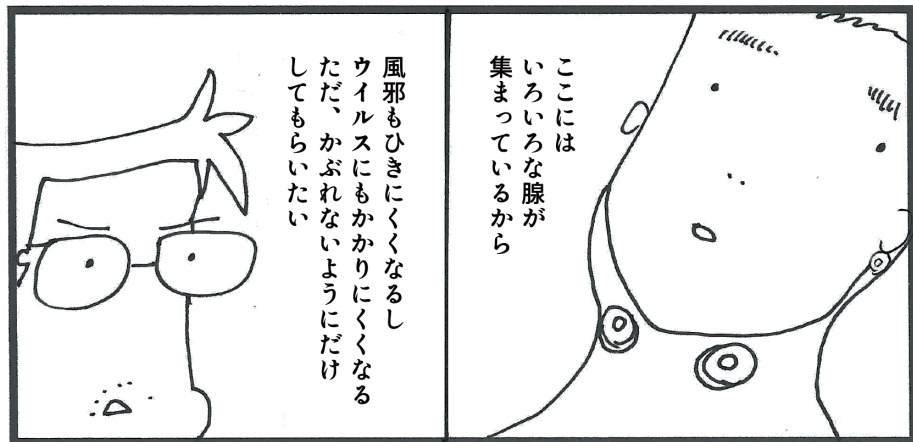 ここには
いろいろな腺が
集まっているから
風邪もひきにくくなるし
ウイルスにもかかりにくくなる
ただ、かぶれないようにだけ
してもらいたい